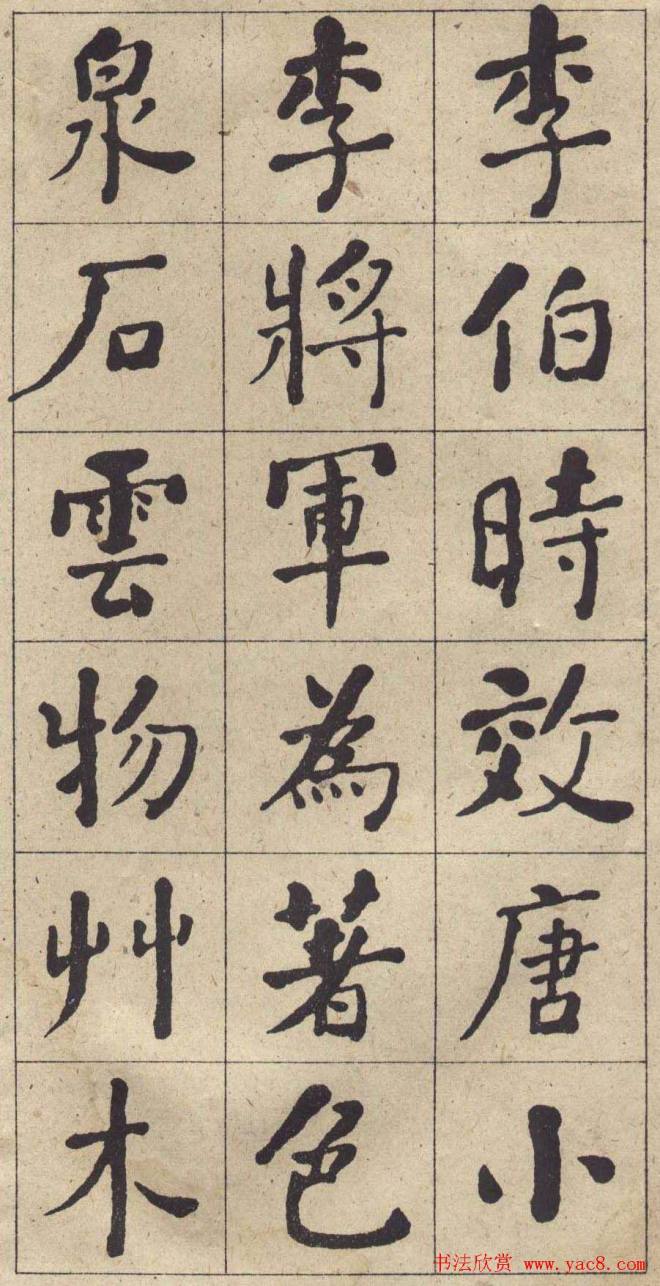 李伯時效唐小
李將軍為著色
泉石雲物艸木
书法欣赏 www.yac8.com